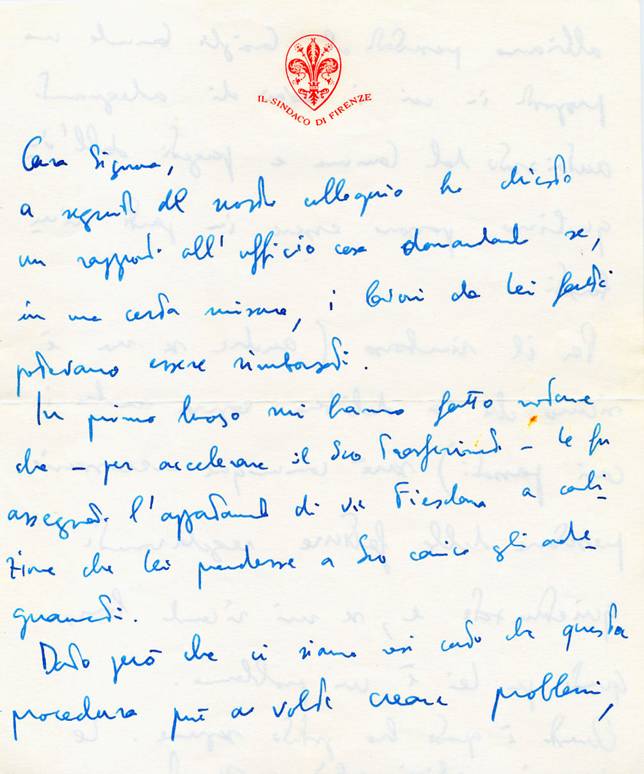 IL SINDACO DI FIRENZE
Cara Signora,
a seguito del nostro colloquio ho chiesto
un rapporto all'ufficio casa domandando se,
in una certa misura, i lavori da Lei fatti
potevano essere rimborsati.
In primo luogo mi hanno fatto notare
che – per accelerare il Suo trasferimento – Le fu
assegnato l'appartamento di via Fiesolana a condi-
zione che Lei prendesse a Suo carico gli ade-
guamenti.
Dato però che ci siamo resi conto che questa
procedura può a volte creare problemi,